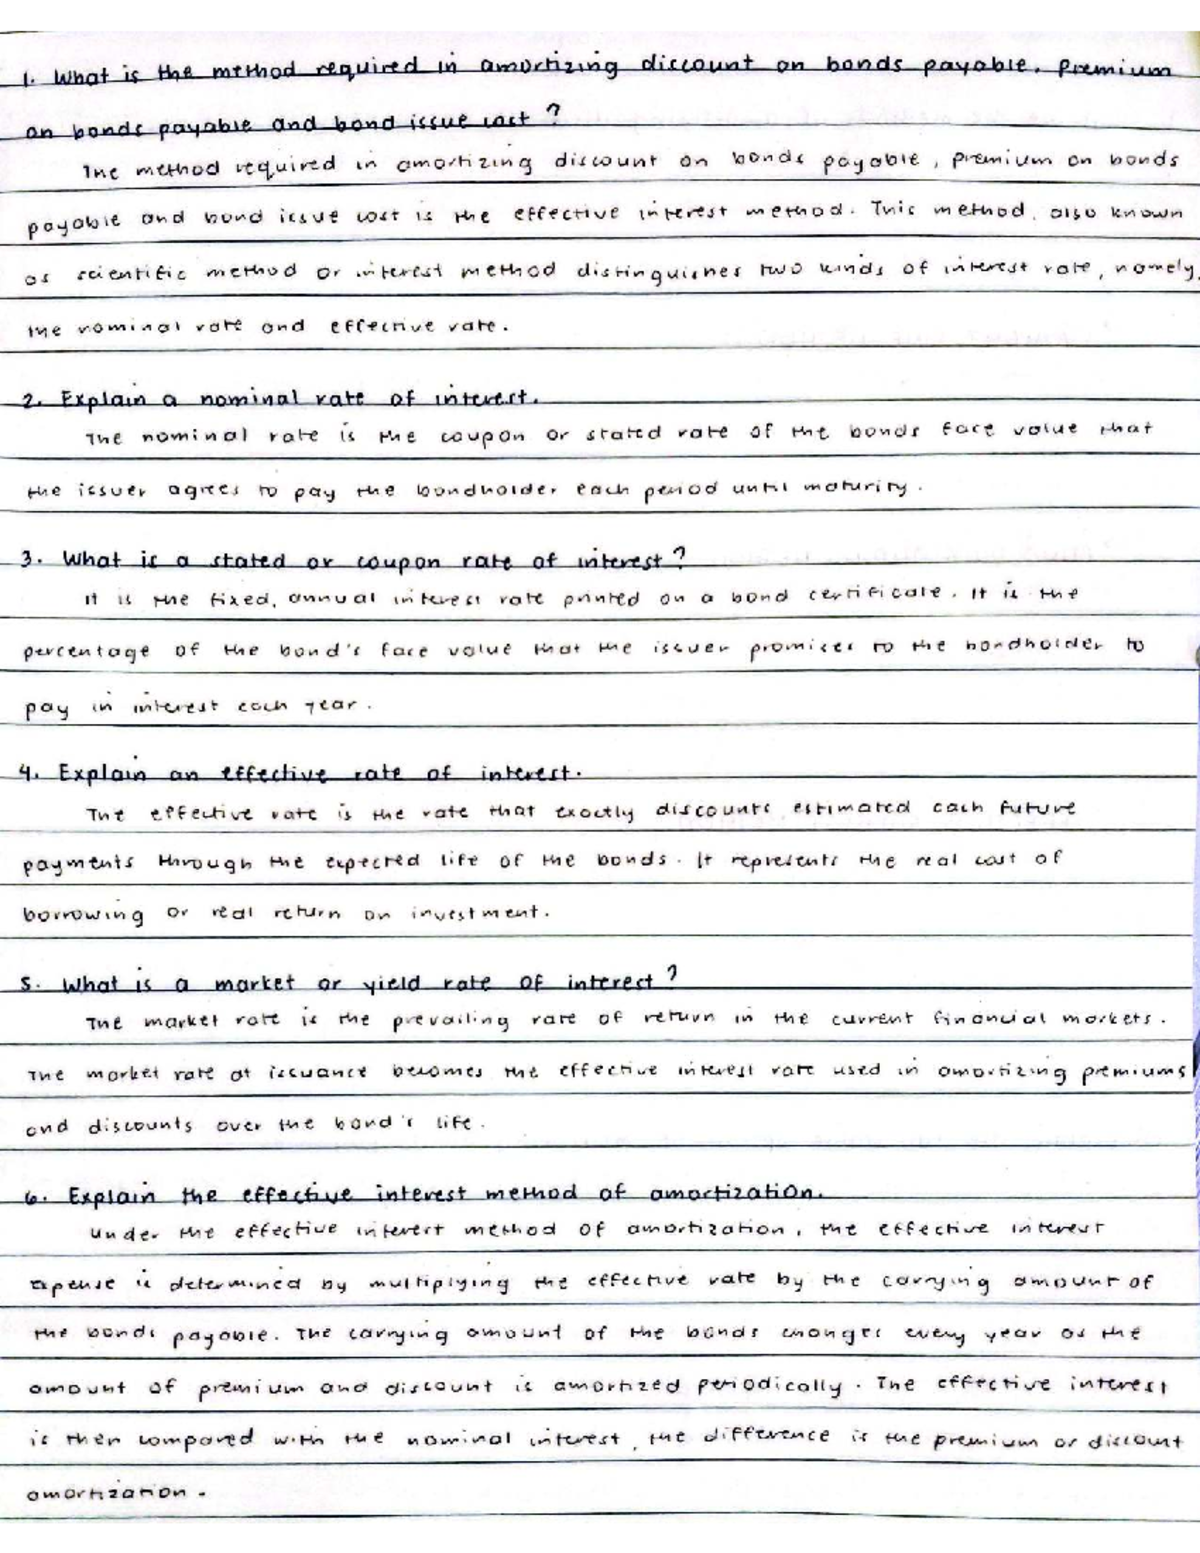 1. What is the method required in amortizing discount on bonds payable, premium
on bonds payable and bond issue cost?
The method required in amortizing discount on bonds payable, premium on bonds
payable and bond issue cost is the effective interest method. This method, also known
as scientific method or interest method distinguishes two kinds of interest rate, namely,
the nominal rate and effective rate.
2. Explain a nominal rate of interest.
The nominal rate is the coupon or stated rate of the bonds face value that
the issuer agrees to pay the bondholder each period until maturity.
3. What is a stated or coupon rate of interest?
It is the fixed, annual interest rate printed on a bond certificate. It is the
percentage of the bond's face value that the issuer promises to the bondholder to
pay in interest each year.
4. Explain an effective rate of interest.
The effective rate is the rate that exactly discounts estimated cash future
payments through the expected life of the bonds. It represents the real cost of
borrowing or real return on investment.
5. What is a market or yield rate of interest?
The market rate is the prevailing rate of return in the current financial markets.
The market rate at issuance becomes the effective interest rate used in amortizing premiums
and discounts over the bond's life.
6. Explain the effective interest method of amortization.
Under the effective interest method of amortization, the effective interest
expense is determined by multiplying the effective rate by the carrying amount of
the bonds payable. The carrying amount of the bonds changes every year as the
amount of premium and discount is amortized periodically. The effective interest
is then compared with the nominal interest, the difference is the premium or discount
amortization.